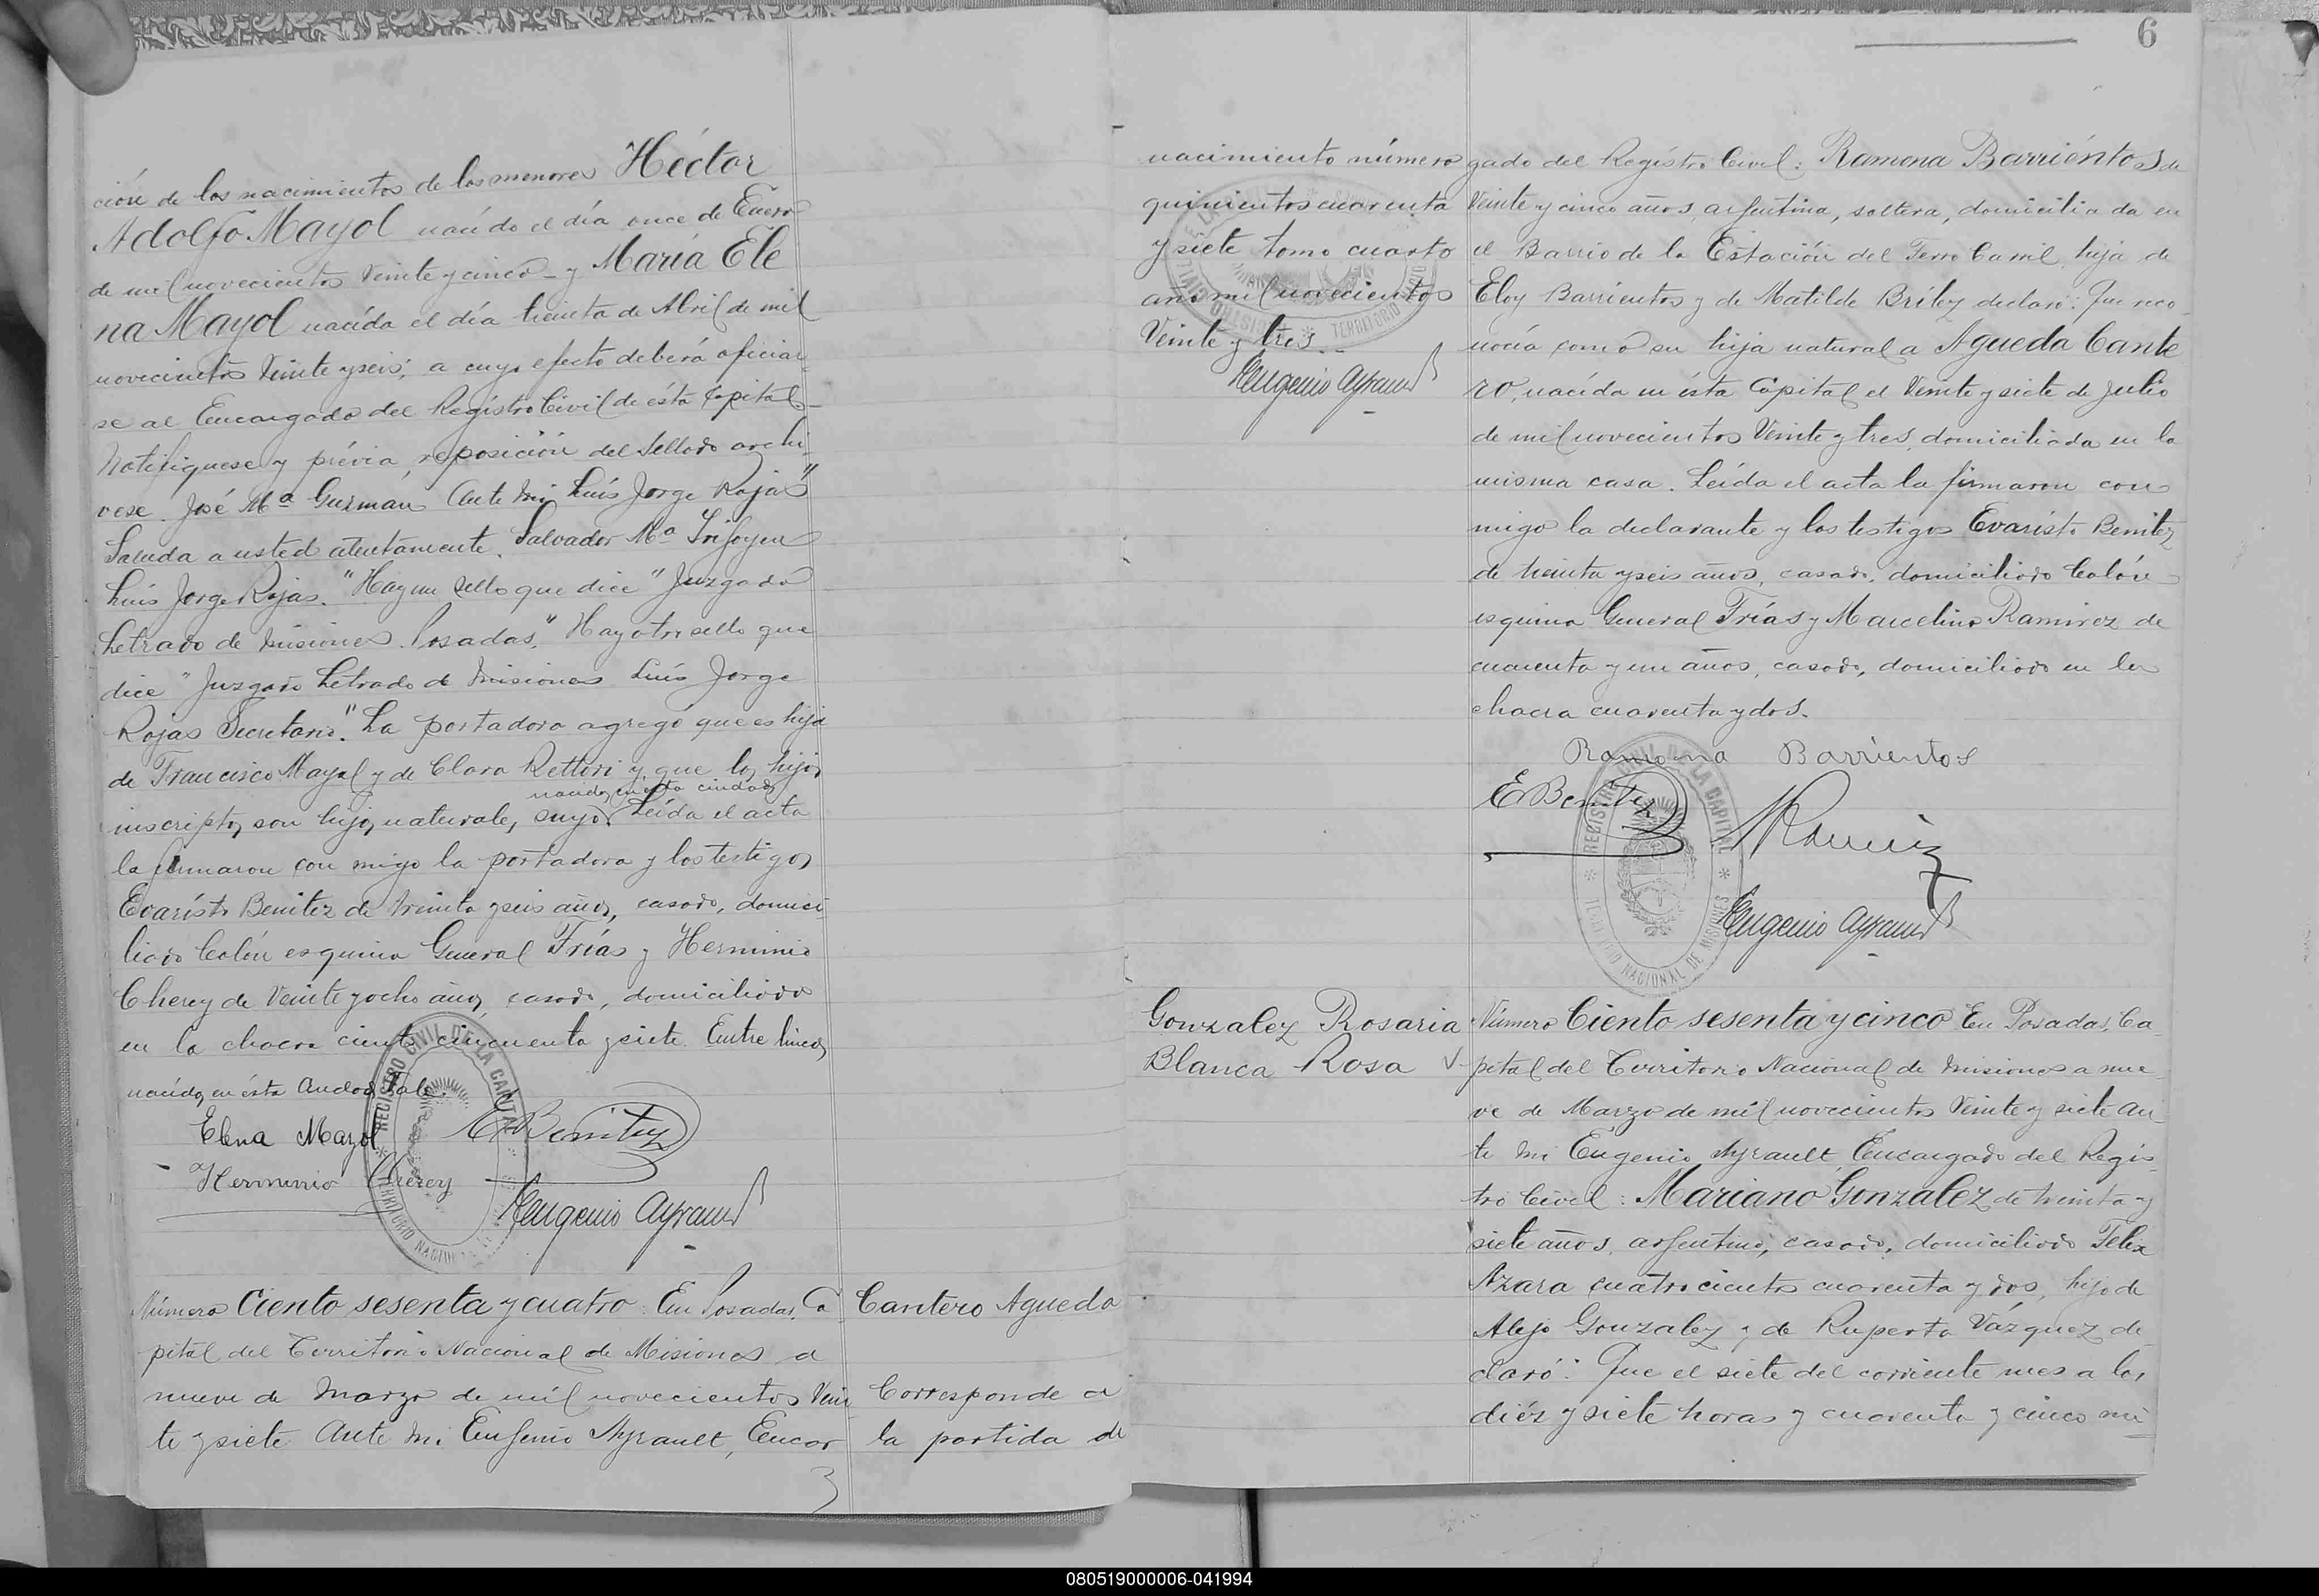 ción de los nacimientos de los menores Héctor
Adolfo Mayol nacido el día once de Enero
de mil novecientos Veinte y cinco y María Ele
na Mayol nacida el día treinta de Abril de mil
novecientos Veinte y seis; a cuyo efecto deberá oficiar
se al Encargado del Registro Civil de ésta Capital
Notifiquese y prévia reposición del Sellado archi
vese. José Mª Guzmán Ante Mi Luís Jorge Rojas"
Saluda a usted atentamente. Salvador Mª Irifoyen
Luís Jorge Rojas. "Hay un sello que dice "Juzgado
Letrado de Misiones. Posadas." Hay otro sello que
dice "Juzgado Letrado de Misiones Luís Jorge
Rojas Secretario." La portadora agregó que es hija
de Francisco Mayol y de Clara Rettori y que los hijos
nacidos en esta ciudad
inscriptos son hijos naturales suyos. Leída el acta
la firmaron con migo la portadora y los testigos
Evarísto Benitez de treinta y seis años, casado, domici
liado Colón esquina General Frías y Herminio
Cherey de Veinte y ocho años, casado, domiciliado
en la chacra ciento cincuenta y siete. Entre lineas
nacidos en ésta Ciudad Vale.
Elena Mayol
E Benitez
Herminio Cherey
Eugenio Ayrault
Número Ciento sesenta y cuatro. En Posadas, Ca
pital del Territorio Nacional de Misiones a
nueve de Marzo de mil novecientos Vein
te y siete Ante Mi Eugenio Ayrault, Encar
3
Cantero Agueda
Corresponde a
la partida de
6
nacimiento número
quinientos cuarenta
y siete tomo cuarto
año mil novecientos
Veinte y tres
Eugenio Ayrault
gado del Registro Civil: Ramona Barriéntos de
Veinte y cinco años, argentina, soltera, domiciliada en
el Barrio de la Estación del Ferro Carril, hija de
Eloy Barrientos y de Matilde Brítez declaró: Que reco
nocía como su hija natural a Agueda Cante
ro, nacída en ésta Capital el Veinte y siete de Julio
de mil novecientos Veinte y tres, domiciliada en la
misma casa. Leída el acta la firmaron con
migo la declarante y los testigos Evarísto Benitez
de treinta y seis años, casado, domiciliado Colón
esquina General Frías y Marcelino Ramirez de
cuarenta y un años, casado, domiciliado en la
chacra cuarenta y dos.
Ramona Barrientos
E Benitez
M Ramirez
REGISTRO CIVIL DE LA CAPITAL
TERRITORIO NACIONAL DE MISIONES
Eugenio Ayrault
Gonzalez Rosaria
Blanca Rosa
Número Ciento sesenta y cinco En Posadas, Ca
pital del Territorio Nacional de Misiones a nue
ve de Marzo de mil novecientos Veinte y siete an
te mi Eugenio Ayrault Encargado del Regis
tro Civil: Mariano Gonzalez de treinta y
siete años, argentino, casado, domiciliado Felix
Azara cuatrocientos cuarenta y dos, hijo de
Alejo Gonzalez y de Ruperta Vázquez de
claró: Que el siete del corriente mes a las
diéz y siete horas y cuarenta y cinco mi
080519000006-041994